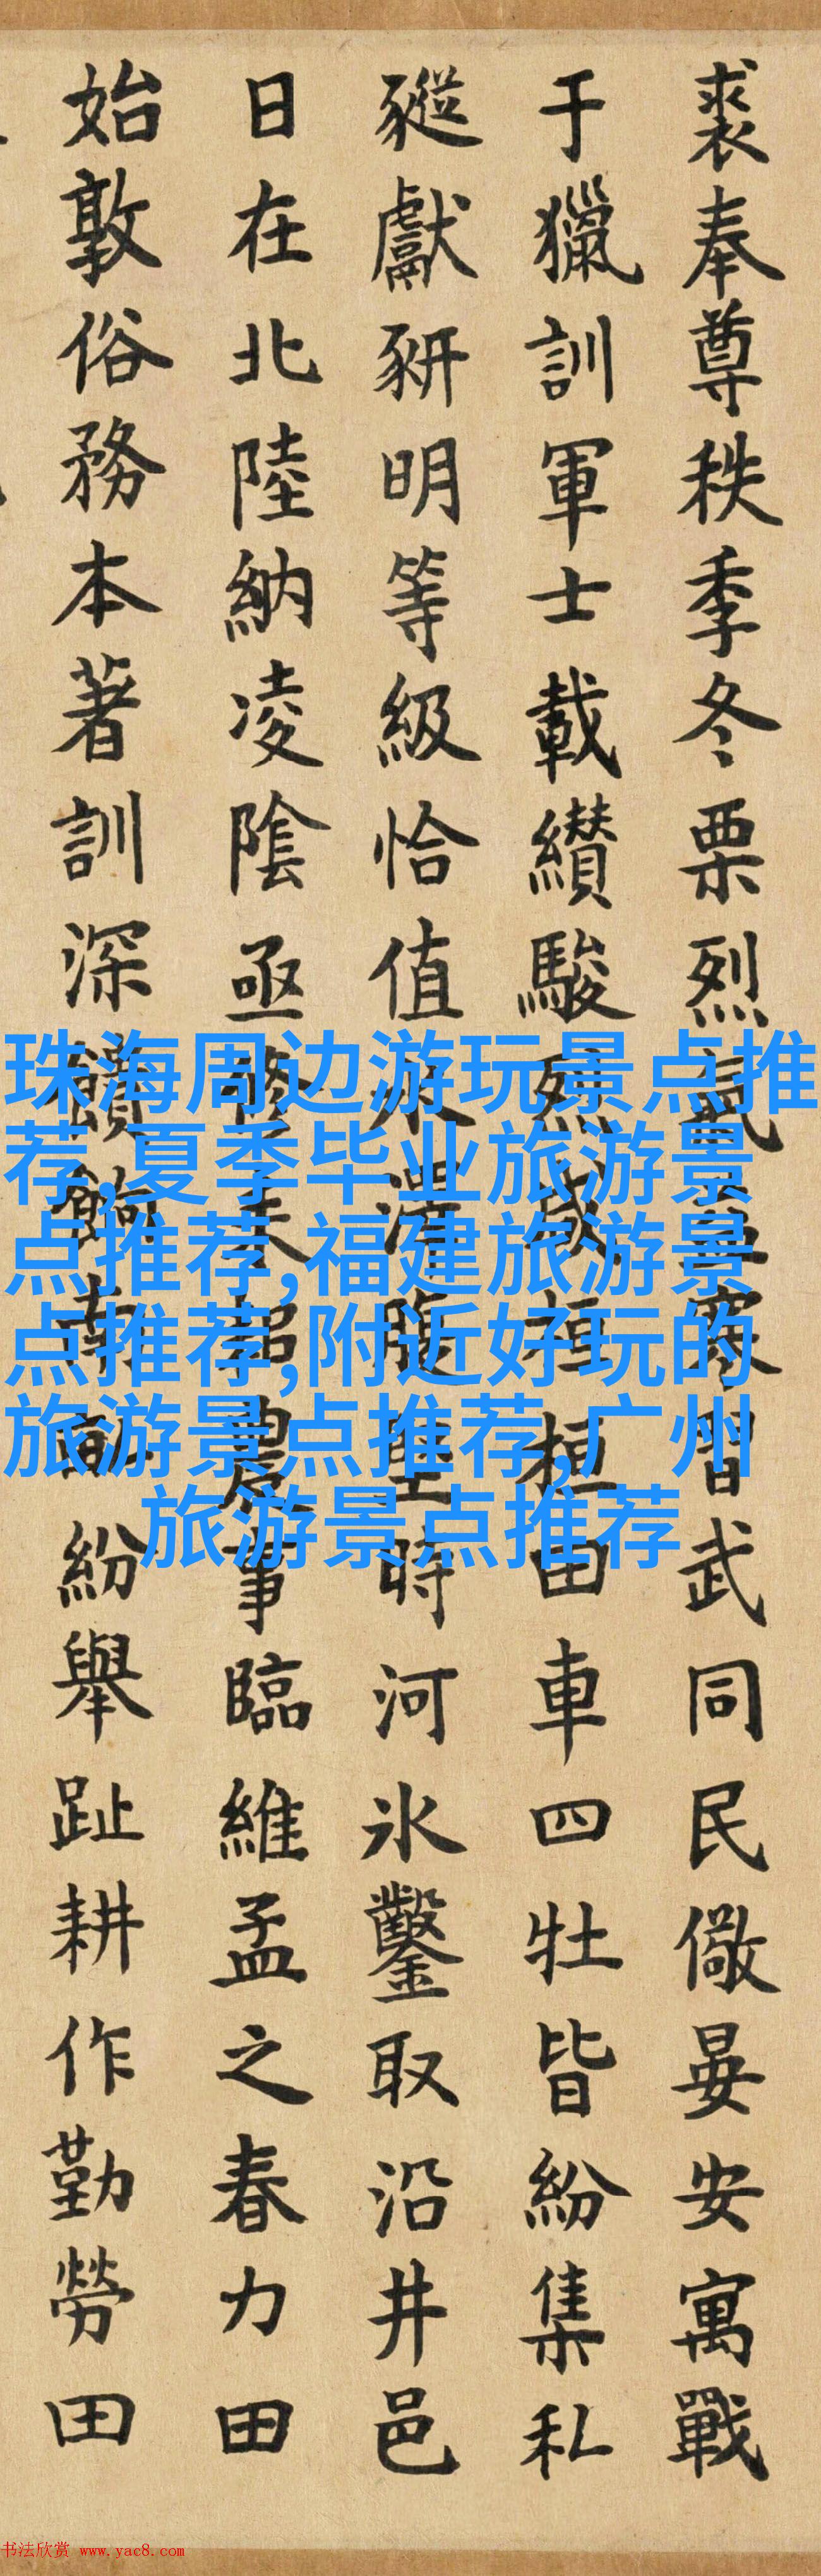 裘奉尊秩季冬栗烈氣寒習武同民儆晏安寓戰
于獵訓軍士載纘駿烈威桓桓田車四牡皆紛集私
豵獻豜明等級恰值水澤腹堅時河氷鑿取沿井邑
日在北陸納凌隂亟修耒耜農事臨維孟之春力田
始敦俗務本著訓深饋餉南畝紛舉趾耕作勤勞田
珠海周边游玩景点推
荐,夏季毕业旅游景
点推荐,福建旅游景
点推荐,附近好玩的
旅游景点推荐,广州
旅游景点推荐
书法欣赏 www.yac8.com